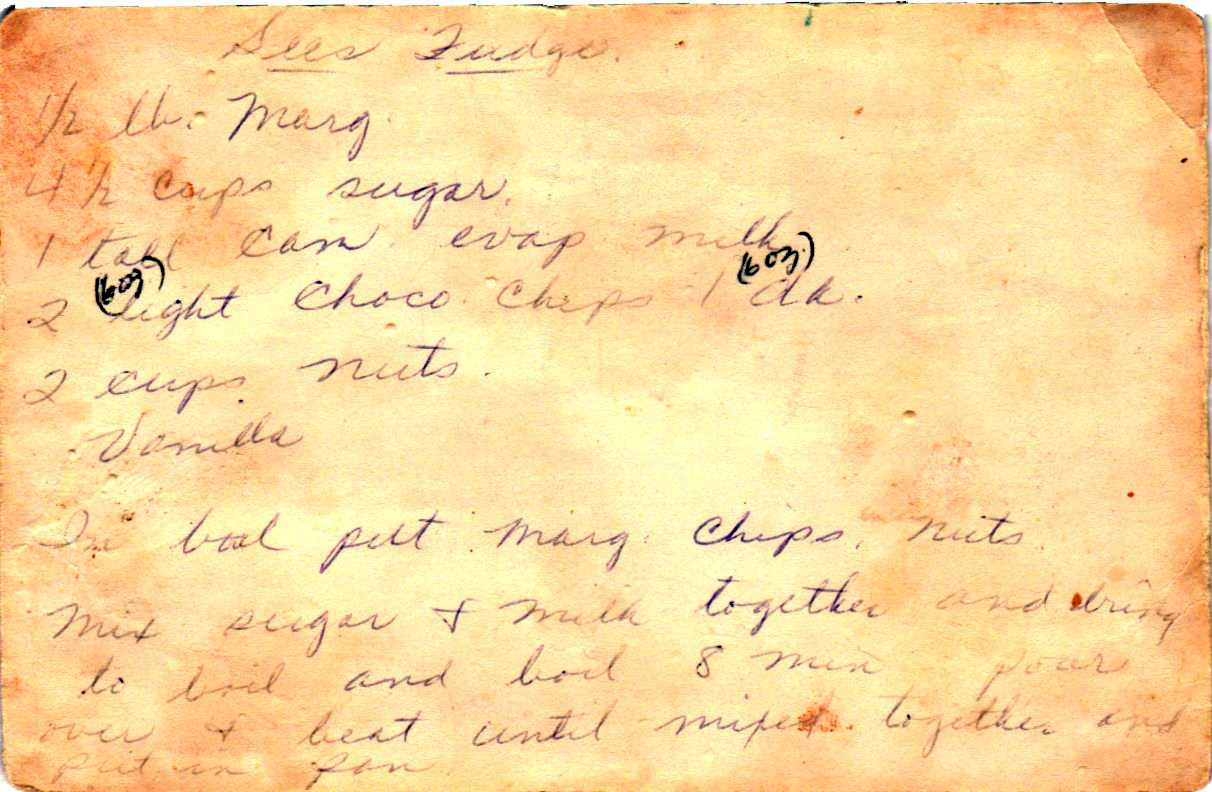 Sees Fudge.
1/2 lb. Marg.
4 1/2 cups sugar.
1 tall can evap milk
2 (6 oz.) light Choco Chips 1 (6 oz.) da.
2 cups nuts.
Vanilla
In boal put marg. Chips. nuts
Mix sugar & milk together and bring
to boil and boil 8 min pour
over & beat until mixed together and
put in pan